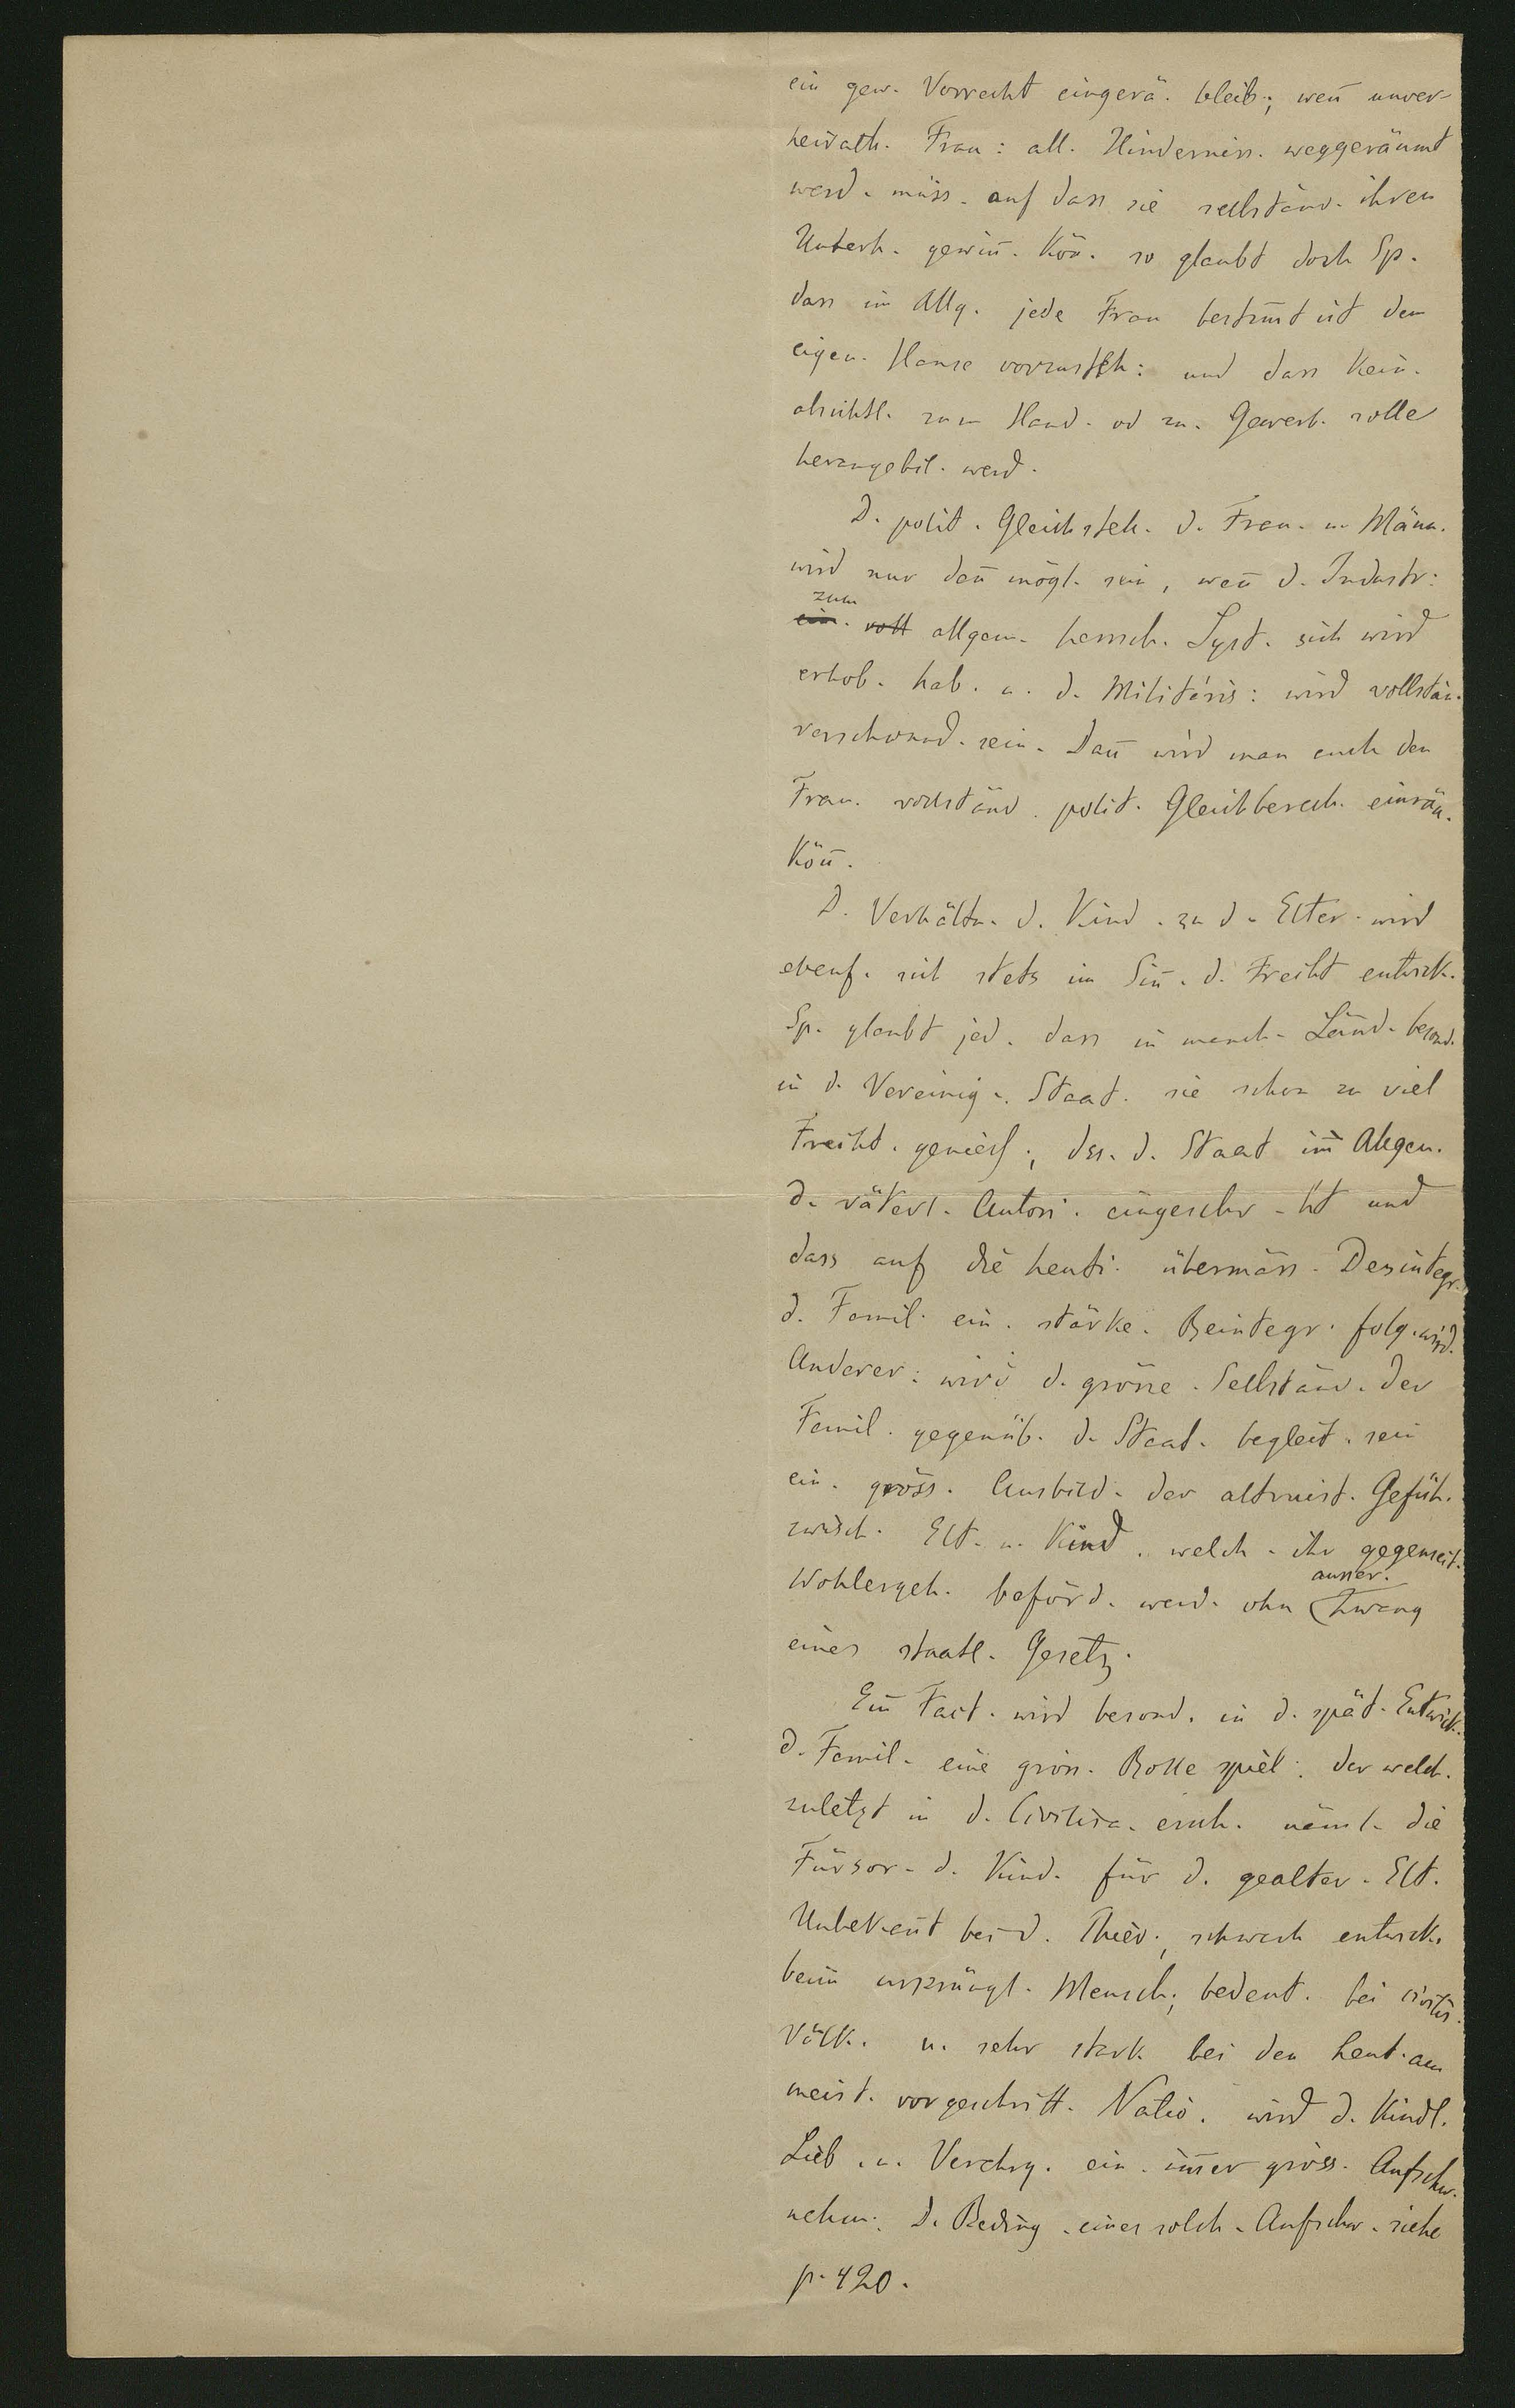 ein gew. Vorrecht eingerä. bleib.; wen̄ unver-
heirath. Frau: all. Hinderniss. weggeräumt
werd. müss. auf dass sie selbständ. ihren
Unterh. gewin̄. Kön̄. so glaubt doch Sp.
dass im Allg. jede Frau bestim̄t ist dem
eigen. Hause vorzusteh: und dass Kein.
absichtl. zum Hand. od zu. Gewerb. solle
herangebil. werd.
D. polit. Gleichstell. d. Frau. u. Männ.
wird nur dan̄ mögl. sein, wen̄ d. Industr:
zum
ein. voll allgem. herrsch. Syst. sich wird
erhob. hab. u. d. Militäris: wird vollstän.
verschwund. sein. Dan̄ wird man auch den
Frau. vollständ. polit. Gleichberech. einräu.
Kön̄.
D. Verhältn. d. Kind. zu d. Elter. wird
ebenf. sich stets im Sin̄. d. Freiht entwick.
Sp. glaubt jed. dass in manch. Länd. besond.
in d. Vereinig. Staat. sie schon zu viel
Freiht. geniess.; dss. d. Staat im̄ Allgem.
d. väterl. Autori. eingeschr-kt und
dass auf die heuti. übermäss. Desintegr.
d. Famil. ein. stärke. Reintegr. folg. wird.
Anderer: wird d. grösse. Selbständ. der
Famil. gegenüb. d. Staat. begleit. sein
ein. gröss. Ausbild. der altruist. Gefüh.
zwisch. Elt. u. Kind. welch. ihr gegenseit.
ausser.
Wohlergeh. beförd. werd. ohn Zwang
eines staatl. Gesetz.
Ein̄ Fact. wird besond. in d. spät. Entwick.
d. Famil. eine gröss. Rolle spiel: der welch.
zuletzt in d. Civilisa. ersch. näml. die
Fürsor. d. Kind. für d. gealter. Elt.
Unbekan̄t bei d. Thier.; schwach entwick.
beim ursprüngl. Mensch; bedeut. bei civilis.
Völk. u. sehr stark bei den heut. am
meist. vorgeschritt. Natio. wird d. Kindl.
Lieb. u. Verehrg. ein. im̄er gröss. Aufschw.
nehm. D. Beding. eines solch. Aufschw. siehe
p. 420.